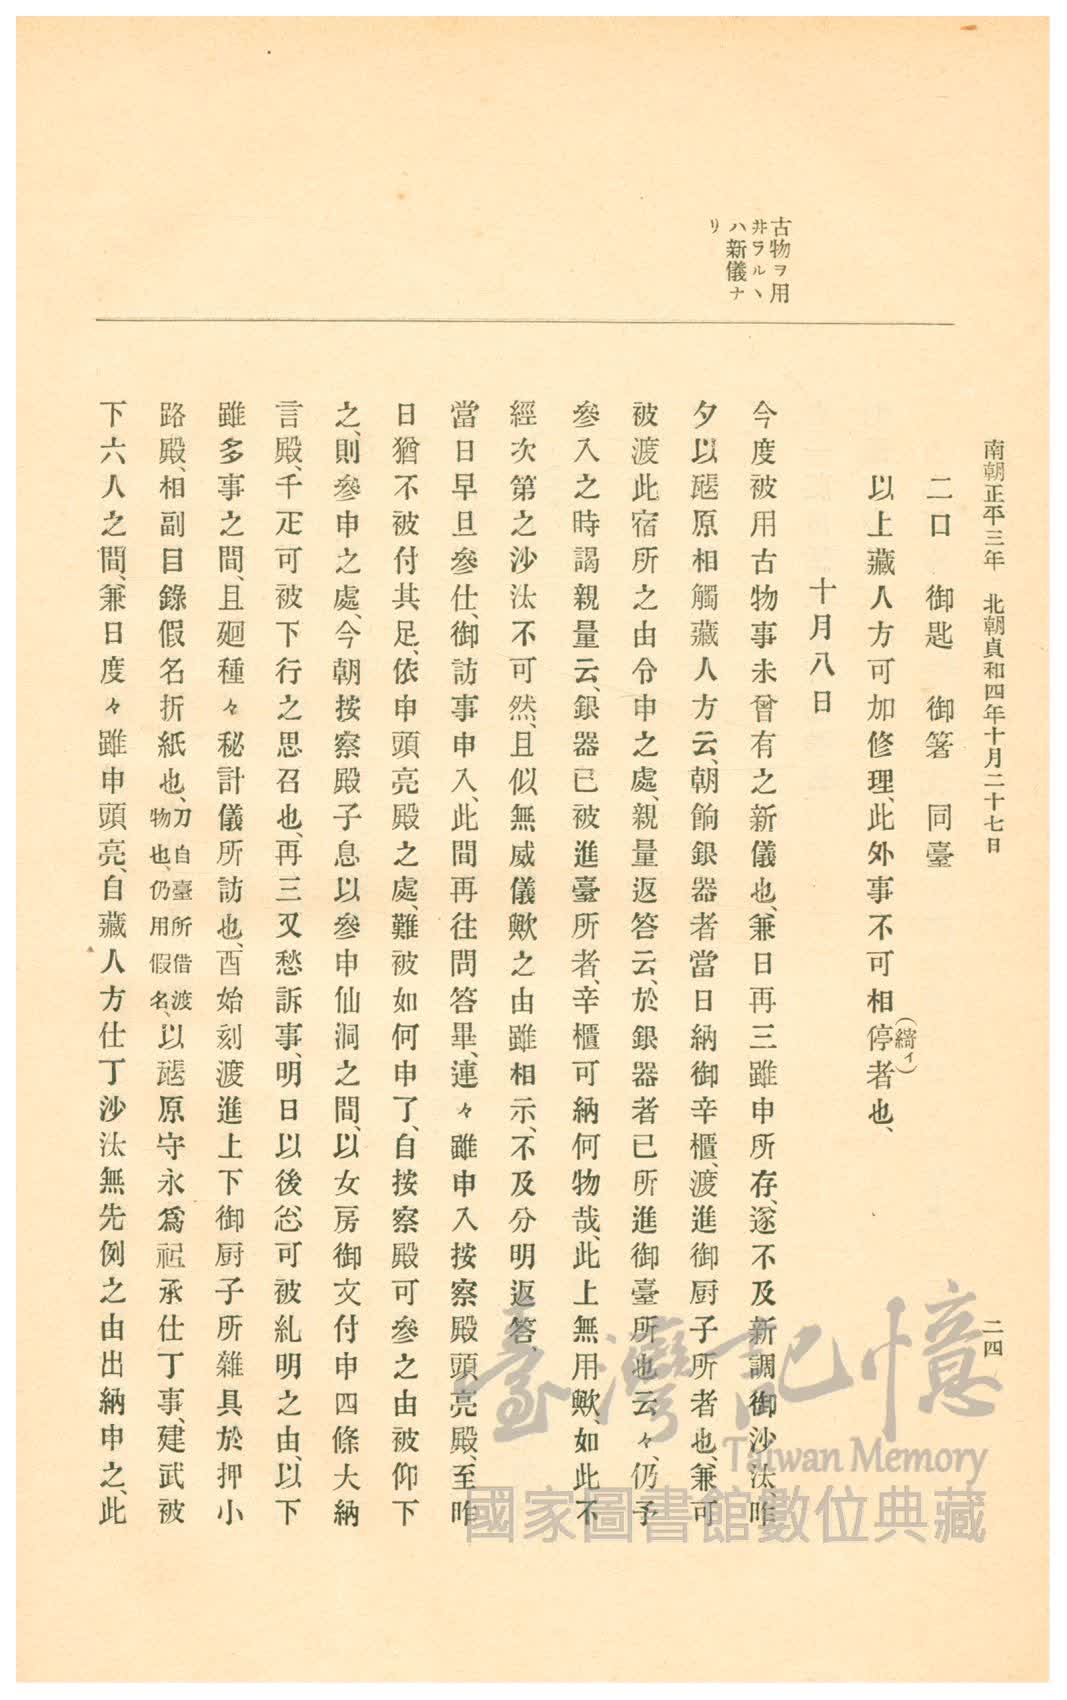 南朝正平三年　北朝貞和四年十月二十七日
二四
古物ヲ用
ヰラルヽ
ハ新儀ナ
リ
二口　御匙　御箸　同臺
以上藏人方可加修理、此外事不可相停者也、
（綺イ）
十月八日
今度被用古物事未曾有之新儀也、兼日再三雖申所存、遂不及新調御沙汰、昨
夕以原相觸藏人方云、朝餉銀器者當日納御辛櫃、渡進御厨子所者也、兼可
被渡此宿所之由令申之處、親量返答云、於銀器者已所進御臺所也云々、仍予
參入之時謁親量云、銀器已被進臺所者、辛櫃可納何物哉、此上無用歟、如此不
經次第之沙汰不可然、且似無威儀歟之由雖相示、不及分明返答、
當日早旦參仕、御訪事申入、此間再往問答畢、連々雖申入按察殿頭亮殿、至昨
日猶不被付其足、依申頭亮殿之處、難被如何申了、自按察殿可參之由被仰下
之、則參申之處、今朝按察殿子息以參申仙洞之間、以女房御文付申四條大納
言殿、千疋可被下行之思召也、再三又愁訴事、明日以後忩可被糺明之由、以下
雖多事之間、且廻種々秘計儀所訪也、酉始刻渡進上下御厨子所雜具於押小
路殿、相副目錄假名折紙也、刀自臺所借渡
物也、仍用假名、以原守永爲承仕丁事、建武被
下六人之間、兼日度々雖申頭亮、自藏人方仕丁沙汰無先例之由出納申之、此
臺灣記憶
Taiwan Memory
國家圖書館數位典藏